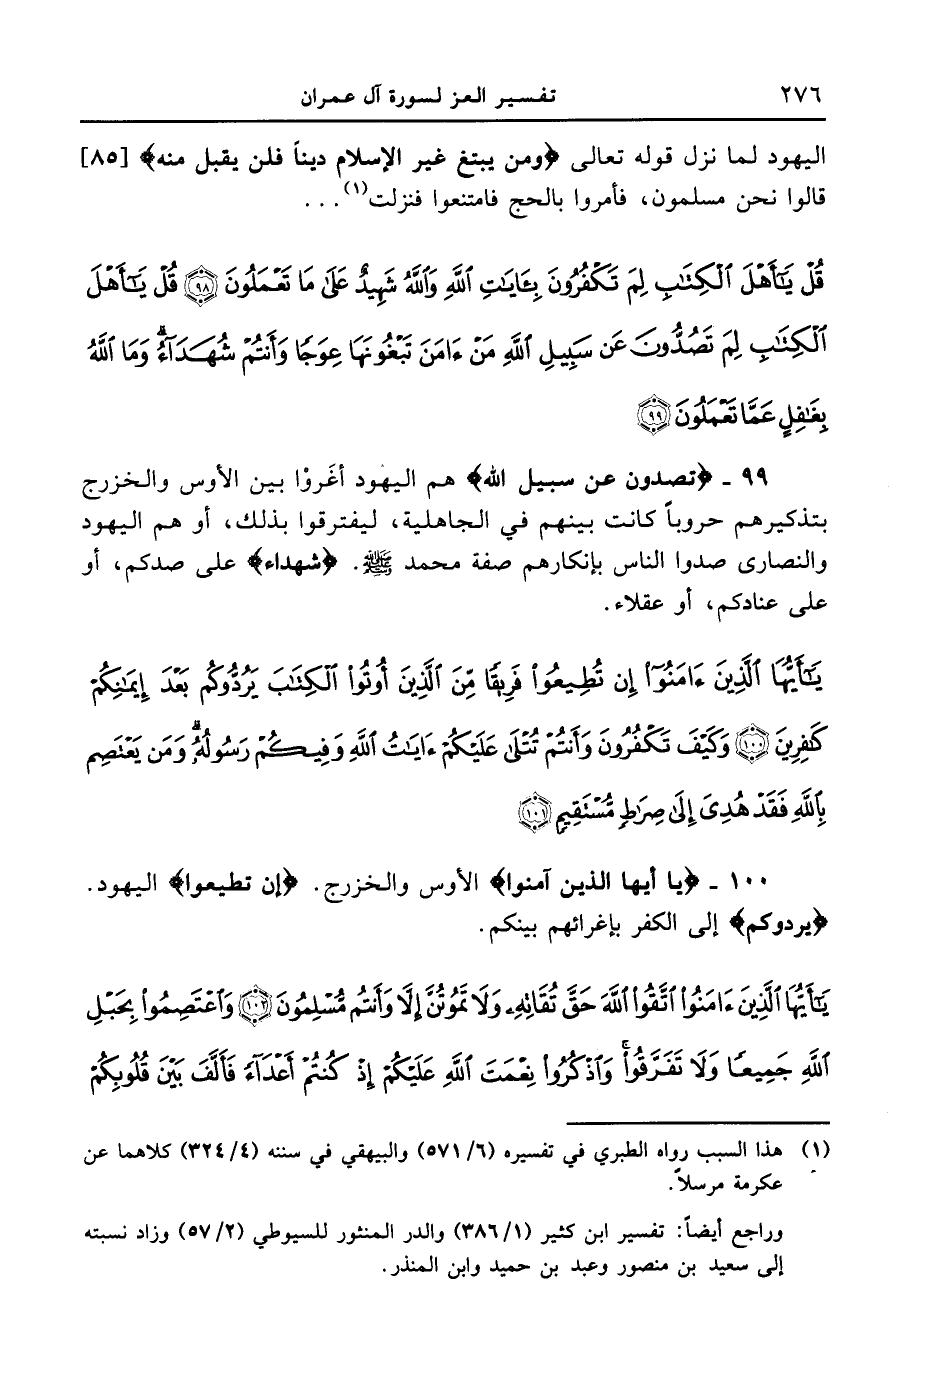 ٢٧٦ تفسير العز لسورة آل عمران
اليهود لما نزل قوله تعالى ﴿ومن يبتغ غير الإسلام ديناً فلن يقبل منه﴾ [٨٥]
قالوا نحن مسلمون، فأمروا بالحج فامتنعوا فنزلت(١). . .
قُلْ يَٰٓأَهْلَ ٱلْكِتَٰبِ لِمَ تَكْفُرُونَ بِـَٔايَٰتِ ٱللَّهِ وَٱللَّهُ شَهِيدٌ عَلَىٰ مَا تَعْمَلُونَ ٩٨ قُلْ يَٰٓأَهْلَ
ٱلْكِتَٰبِ لِمَ تَصُدُّونَ عَن سَبِيلِ ٱللَّهِ مَنْ ءَامَنَ تَبْغُونَهَا عِوَجًا وَأَنتُمْ شُهَدَآءُ ۗ وَمَا ٱللَّهُ
بِغَٰفِلٍ عَمَّا تَعْمَلُونَ ٩٩
٩٩ ـ ﴿تصدون عن سبيل الله﴾ هم اليهود أغَروْا بين الأوس والخزرج
بتذكيرهم حروباً كانت بينهم في الجاهلية، ليفترقوا بذلك، أو هم اليهود
والنصارى صدوا الناس بإنكارهم صفة محمد ﷺ. ﴿شهداء﴾ على صدكم، أو
على عنادكم، أو عقلاء.
يَٰٓأَيُّهَا ٱلَّذِينَ ءَامَنُوٓا۟ إِن تُطِيعُوا۟ فَرِيقًا مِّنَ ٱلَّذِينَ أُوتُوا۟ ٱلْكِتَٰبَ يَرُدُّوكُم بَعْدَ إِيمَٰنِكُمْ
كَٰفِرِينَ ١٠٠ وَكَيْفَ تَكْفُرُونَ وَأَنتُمْ تُتْلَىٰ عَلَيْكُمْ ءَايَٰتُ ٱللَّهِ وَفِيكُمْ رَسُولُهُۥ ۗ وَمَن يَعْتَصِم
بِٱللَّهِ فَقَدْ هُدِىَ إِلَىٰ صِرَٰطٍ مُّسْتَقِيمٍ ١٠١
١٠٠ ـ ﴿يا أيها الذين آمنوا﴾ الأوس والخزرج. ﴿إن تطيعوا﴾ اليهود.
﴿يردوكم﴾ إلى الكفر بإغرائهم بينكم.
يَٰٓأَيُّهَا ٱلَّذِينَ ءَامَنُوا۟ ٱتَّقُوا۟ ٱللَّهَ حَقَّ تُقَاتِهِۦ وَلَا تَمُوتُنَّ إِلَّا وَأَنتُم مُّسْلِمُونَ ١٠٢ وَٱعْتَصِمُوا۟ بِحَبْلِ
ٱللَّهِ جَمِيعًا وَلَا تَفَرَّقُوا۟ ۚ وَٱذْكُرُوا۟ نِعْمَتَ ٱللَّهِ عَلَيْكُمْ إِذْ كُنتُمْ أَعْدَآءً فَأَلَّفَ بَيْنَ قُلُوبِكُمْ
(١) هذا السبب رواه الطبري في تفسيره (٥٧١/٦) والبيهقي في سننه (٣٢٤/٤) كلاهما عن
عكرمة مرسلاً.
وراجع أيضاً: تفسير ابن كثير (٣٨٦/١) والدر المنثور للسيوطي (٥٧/٢) وزاد نسبته
إلى سعيد بن منصور وعبد بن حميد وابن المنذر.